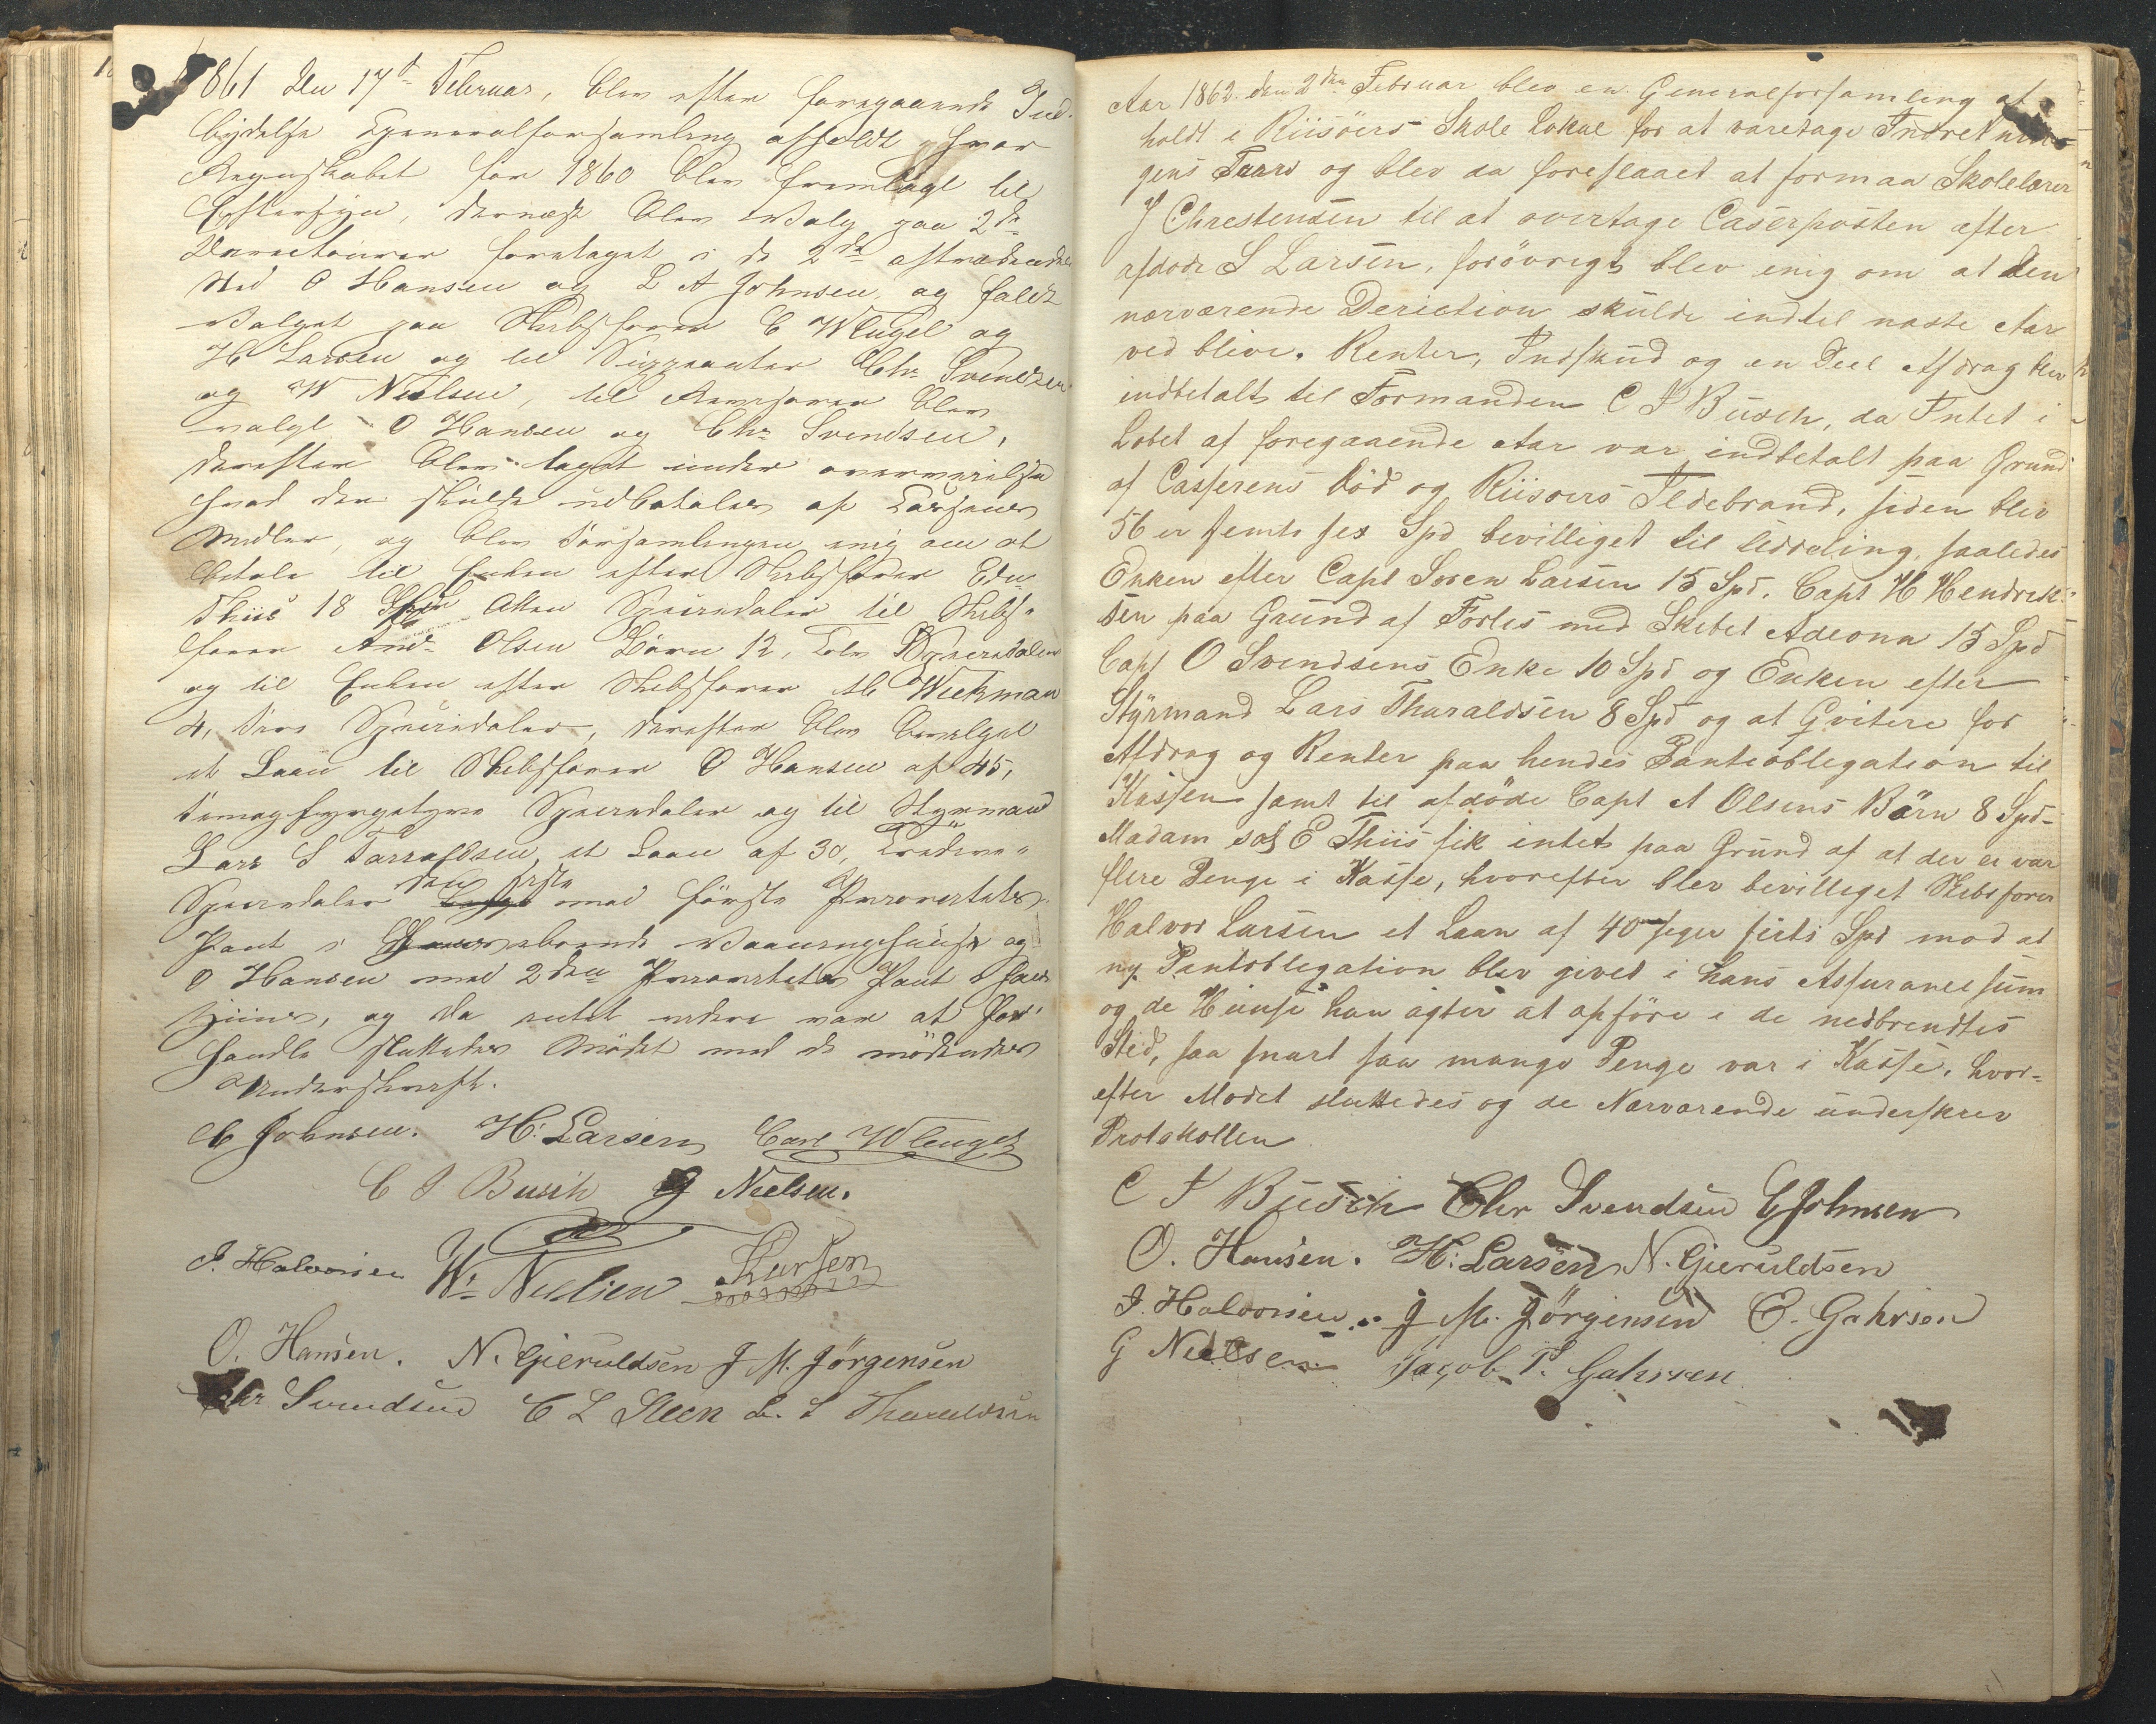 1861 den 17de Februar, blev efter foregaaende Ind-
bydelse Generalforsamling afholdt, hvor
Regnskabet for 1860 blev fremlagt til
Eftersyn, dernæst blev Valg paa 2de
Derectourer foretaget i de 2de aftrædendes
Sted O Hansen og L A Johnsen, og faldt
Valget paa Skibsfører C Wlugel og
H Larsen og til Suppeanter Chr Svendsen
og W Nielsen, til Revisorer blev
valgt O Hansen og Chr Svendsen,
derefter blev taget under overveielse
hvad der skulde udbetales af Cassens
Midler, og blev Forsamlingen enig om at
betale til Enken efter Skibsfører Edv
Thiis 18 Spd Atten Speciedaler til Skibs-
fører And Olsen Børn 12, Tolv Speciedaler
og til Enken efter Skibsfører Ab Wickman
4, fire Speciedaler, derefter blev bevilget
et Laan til Skibsfører O Hansen af 45,
femogfyrgetyve Speciedaler og til Styrmand
Lars S Tarraldsen, et Laan af 30, Tredeve-
Speciedaler den sidste mod første Prioritets
Pant i iboende Vaaningshuus og
O Hansen mod 2den Prioritets Pant i hans
Huus, og da intet videre var at for-
handle sluttedes Mødet med de mødendes
Underskrift.
C Johnsen. H. Larsen Carl Wlugel
C J Busch G Nielsen.
J. Halvorsen W. Nielsen Larsen
O. Hansen. N. Gieruldsen J M. Jörgensen
Chr Svendsen C L Steen L. S Tharaldsen
Aar 1862. den 2den Februar blev en Generalforsamling af
holdt i Riisöers Skole Lokal for at varetage Indretnin
gens Tarv og blev da foreslaaet at formaa Skolelærer
J Chrestensen til at overtage Caserposten efter
afdøde S Larsen, forövrigt blev enig om at den
nærværende Deriction skulde indtil næste Aar
ved blive. Renter, Indskud og en Deel Afdrag blev
indbetalt til Formanden C J Busch, da Intet i
Løbet af foregaaende Aar var indbetalt paa Grund
af Casserens Död og Riisoers Ildebrand, siden blev
56 er femti sex Spd bevilliget til Uddeling, saaledes
Enken efter Capt Soren Larsen 15 Spd. Capt H Hendrik-
sen paa Grund af Forlis med Skibet Adeona 15 Spd
Capt O Svendsens Enke 10 Spd og Enken efter
Styrmand Lars Tharaldsen 8 Spd og at Qvitere for
Afdrag og Renter paa hendes Panteobligation til
Kassen samt til afdøde Capt A Olsens Børn 8 Spd-
Madam sal E Thiis fik intet paa Grund af at der ei var
flere Penge i Kasse, hvorefter blev bevilliget Skibsfører
Halvor Larsen et Laan af 40 siger firti Spd mod at
ny Pantobligation blev givet i hans Assurancesum
og de Huuse han agter at opføre i de nedbrendtes
Sted, saa snart saa mange Penge var i Kasse, hvor-
efter Mødet sluttedes og de Nærværende underskrev
Protokollen
C J Busch Chr Svendsen C Johnsen
O. Hansen. H: Larsen N. Gieruldsen
J. Halvorsen. J M. Jörgensen E. Gahrsen
G Nielsen Jacob T. Gahrsen